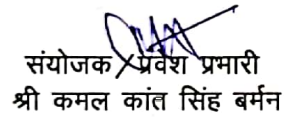 संयोजक / प्रवेश प्रभारी
श्री कमल कांत सिंह बर्मन